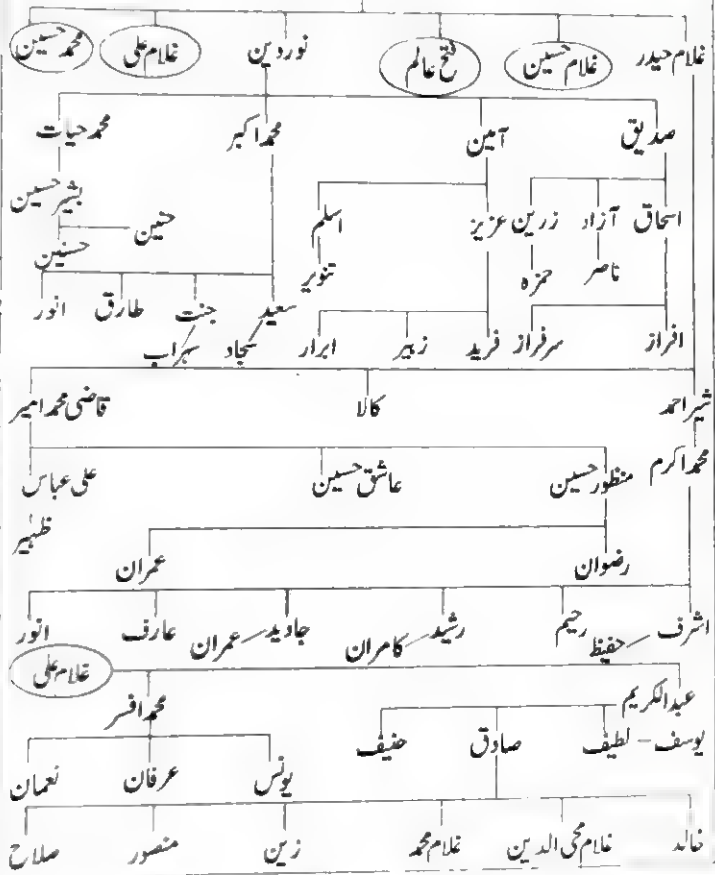 غلام حیدر غلام حسین فتح عالم نوردین غلام علی محمد حسین
صدیق آمین محمد اکبر محمد حیات
اسحاق آزاد زرین عزیز اسلم حسین بشیر حسین
ناصر حمزہ تنویر حسنین
سعید جنت طارق انور
افراز سرفراز فرید زبیر ابرار سجاد سہراب
شیر احمد کالا قاضی محمد امیر
محمد اکرم منظور حسین عاشق حسین علی عباس
ظہیر
رضوان عمران
اشرف حفیظ رحیم رشید کامران جاوید عمران عارف انور
غلام علی
عبدالکریم محمد افسر
یوسف - لطیف صادق حنیف یونس عرفان نعمان
خالد غلام محی الدین غلام محمد زین منصور صلاح